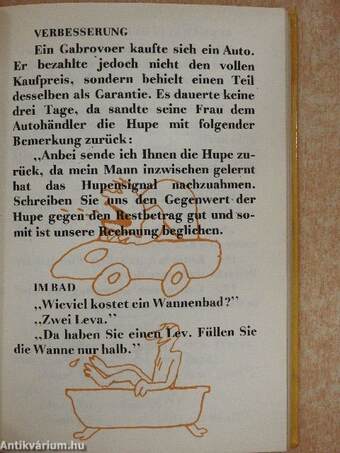 VERBESSERUNG
Ein Gabrovoer kaufte sich ein Auto.
Er bezahlte jedoch nicht den vollen
Kaufpreis, sondern behielt einen Teil
desselben als Garantie. Es dauerte keine
drei Tage, da sandte seine Frau dem
Autohändler die Hupe mit folgender
Bemerkung zurück:
„Anbei sende ich Ihnen die Hupe zu-
rück, da mein Mann inzwischen gelernt
hat das Hupensignal nachzuahmen.
Schreiben Sie uns den Gegenwert der
Hupe gegen den Restbetrag gut und so-
mit ist unsere Rechnung beglichen.
IM BAD
„Wieviel kostet ein Wannenbad?"
„Zwei Leva."
„Da haben Sie einen Lev. Füllen Sie
die Wanne nur halb."
Antikvárium.hu